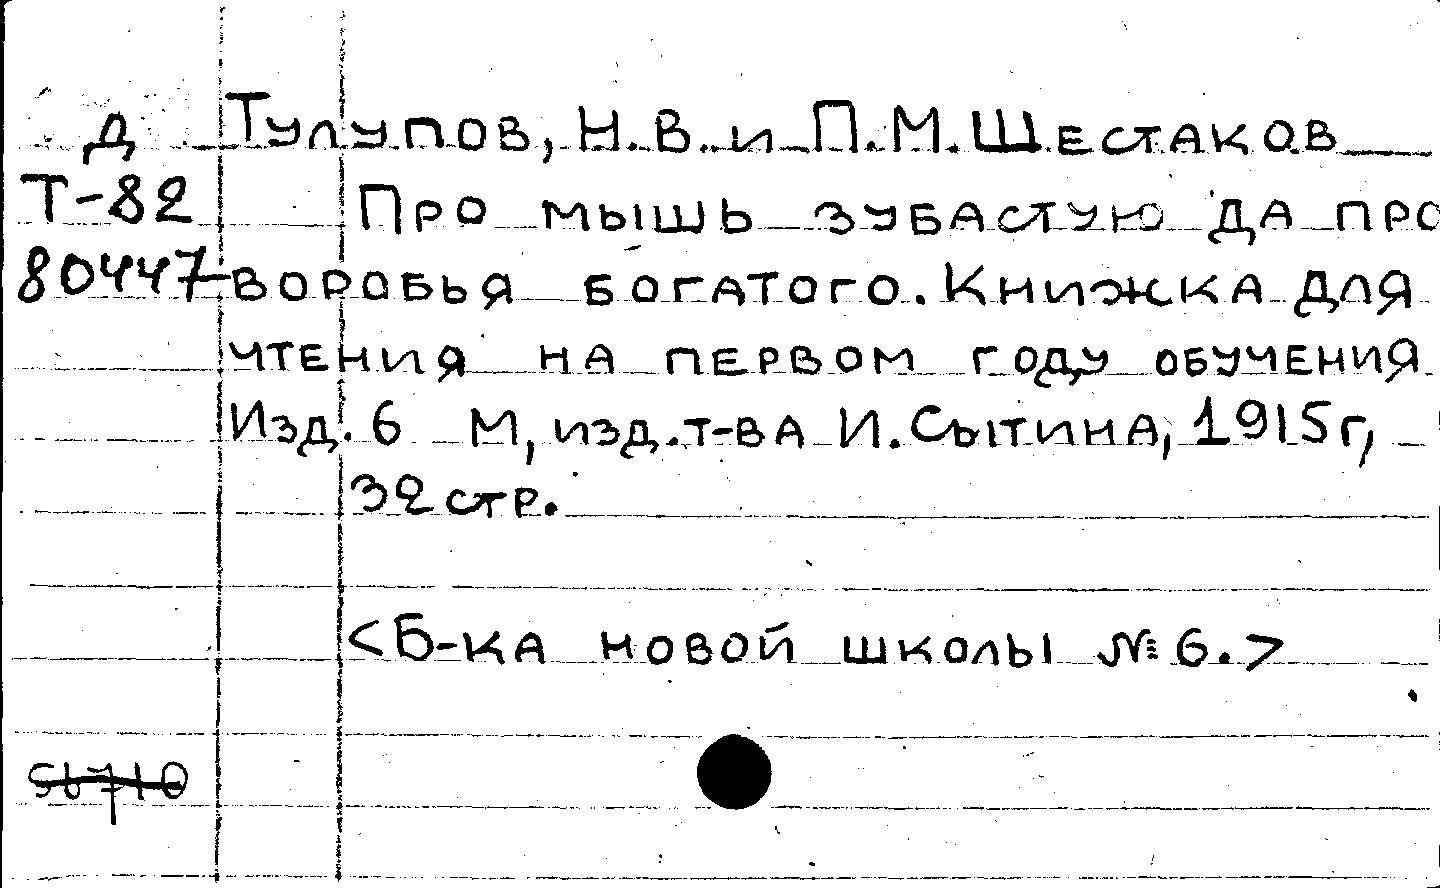 Д Тулупов, Н.В. и П.М. Шестаков
Т-82 Про мышь зубастую да про
80447 воробья богатого. Книжка для
чтения на первом году обучения
Изд. 6 М, изд. т-ва И. Сытина, 1915 г,
32 стр.
<Б-ка новой школы № 6.>